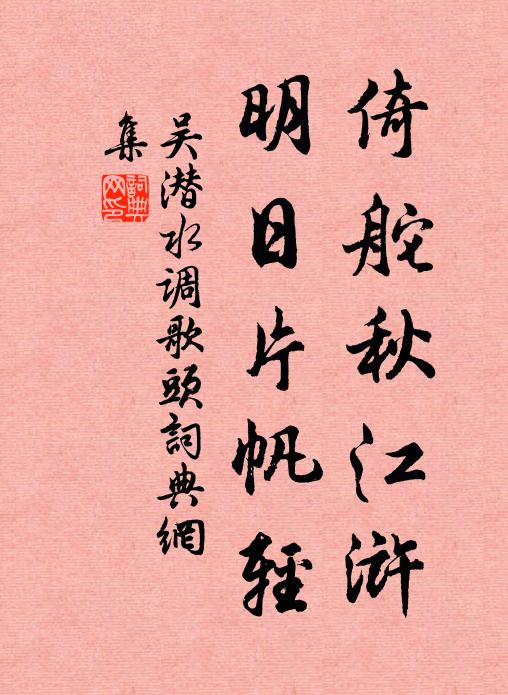 倚舵秋江浒
明日片帆軽
吴潜水调歌头詞典網
集
詞典
网印